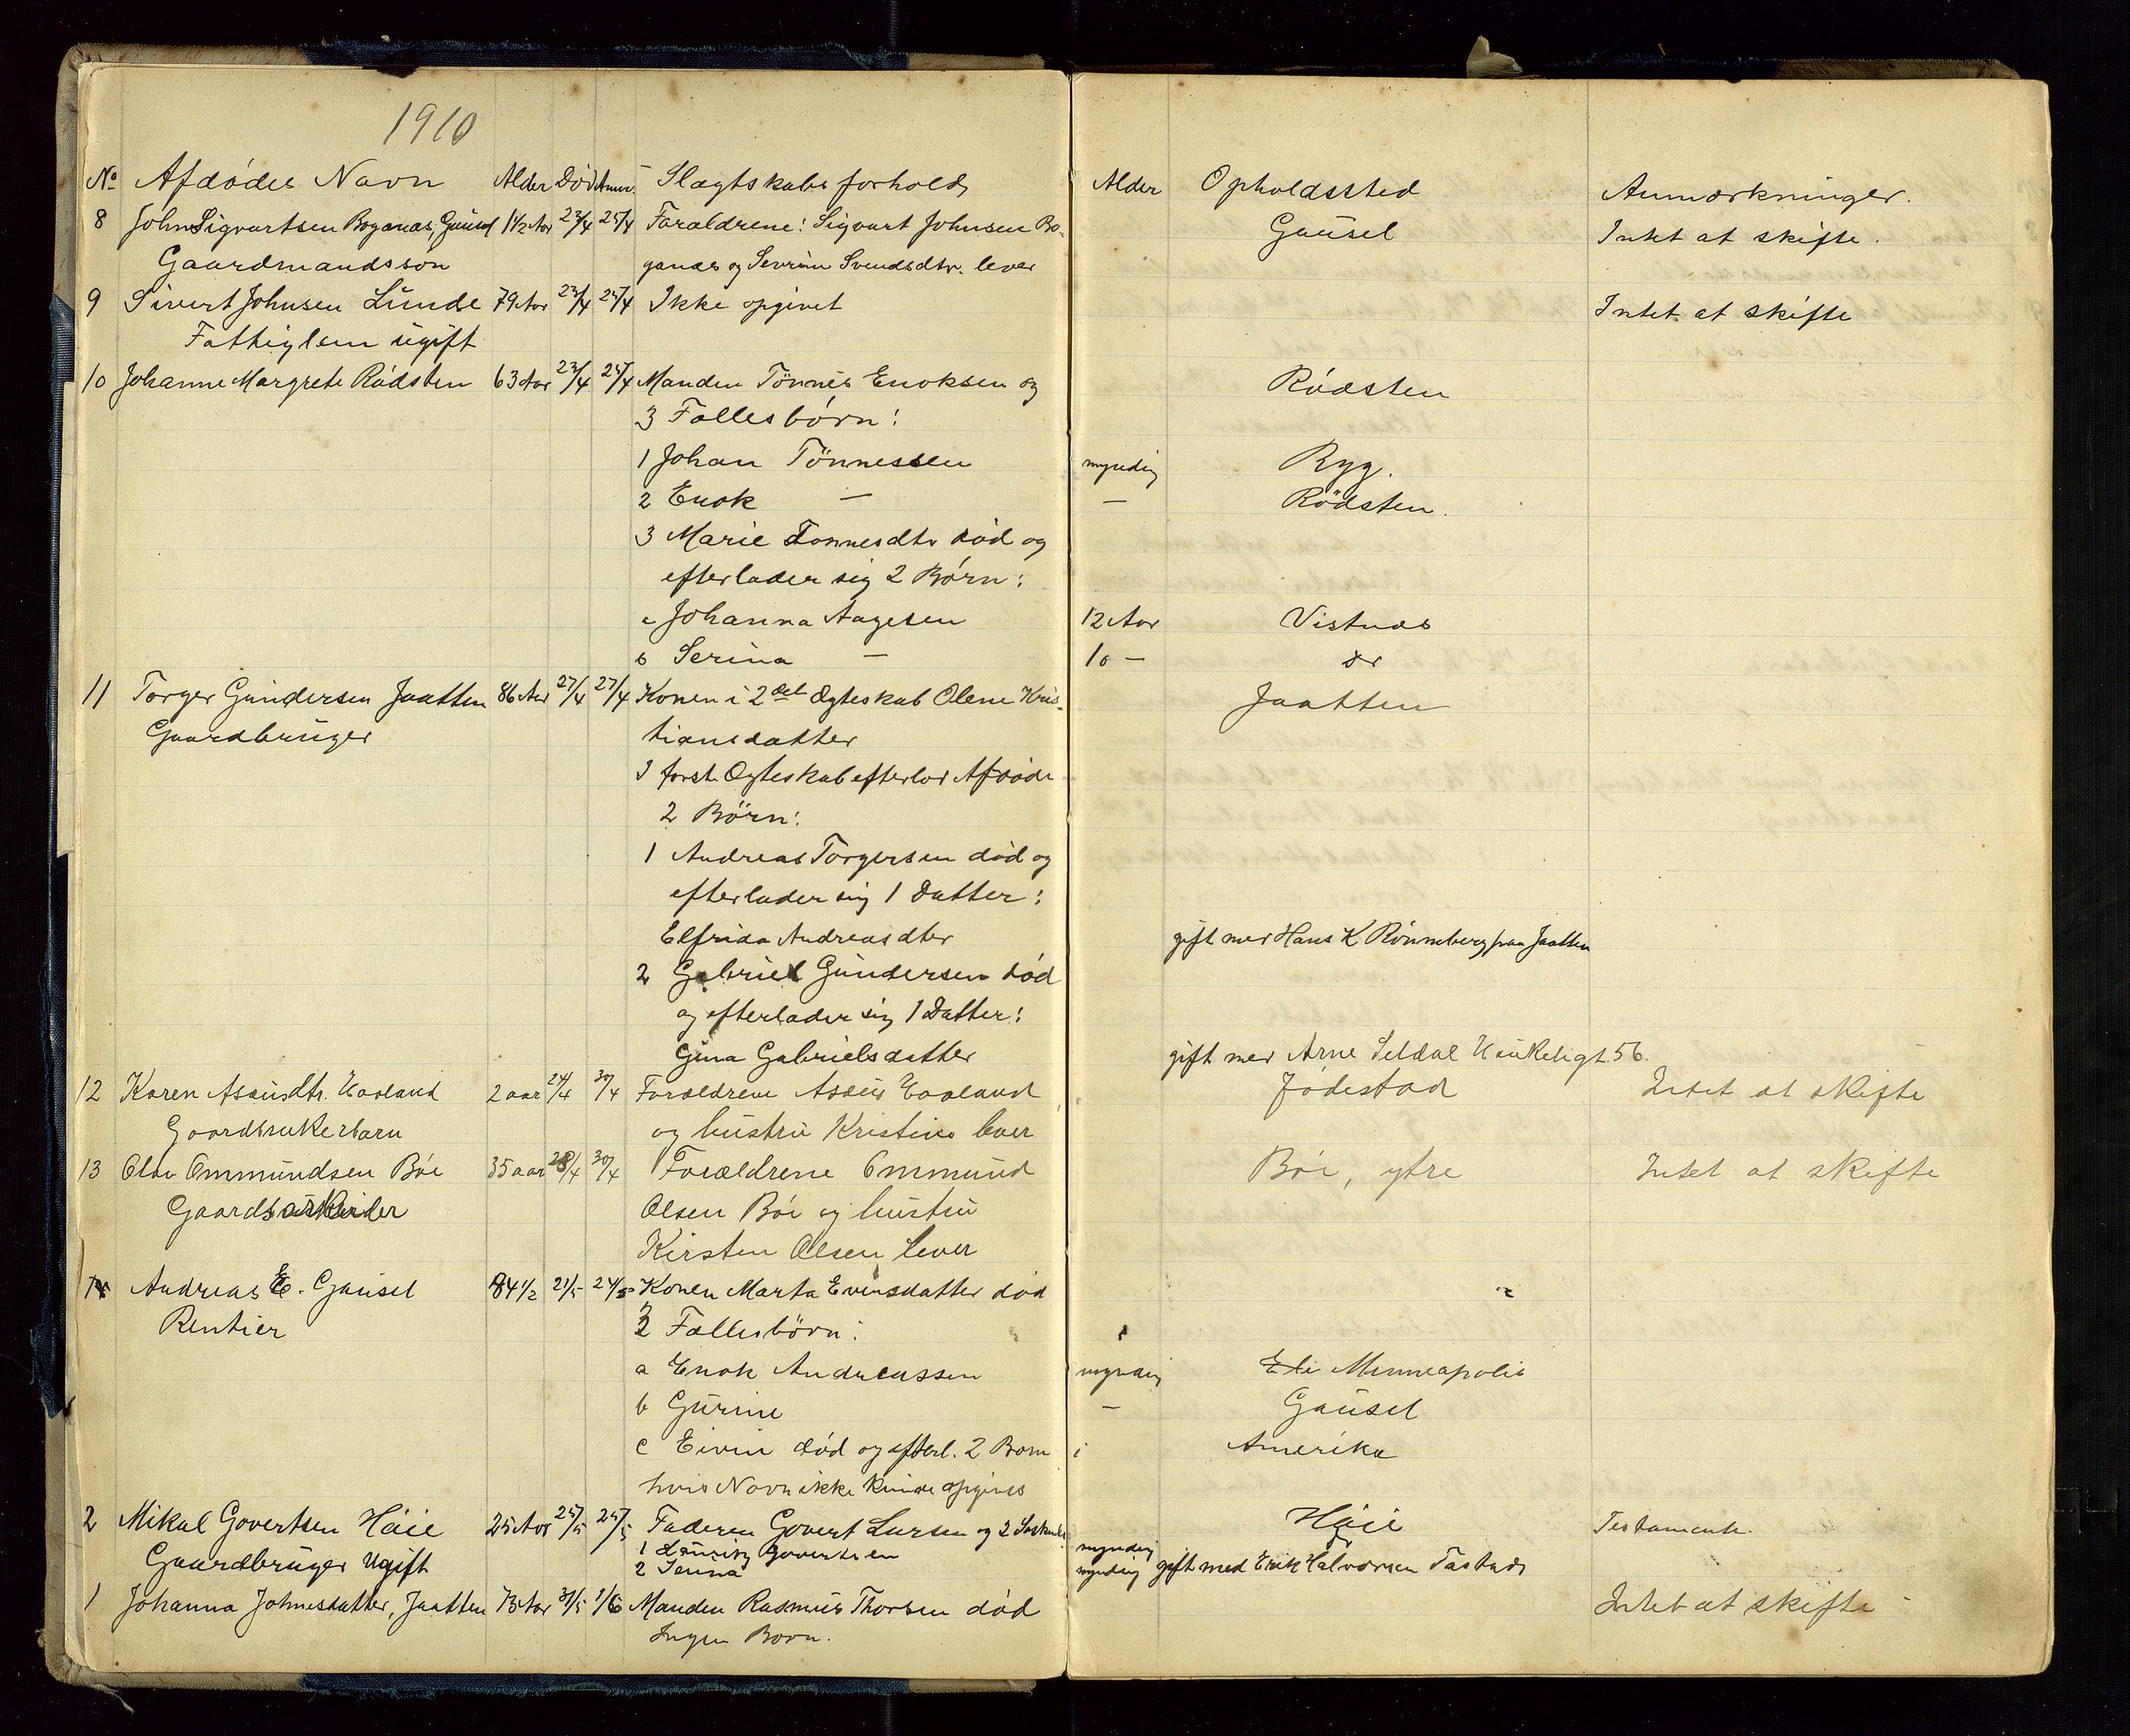 1910
No Afdödes Navn Alder Död Anm. Slægtskabs forhold Alder Opholdssted Anmærkninger.
8 John Sigvartsen Boganæs, Gausel 1 1/2 Aar 23/4 25/4 Forældrene: Sigvart Johnsen Bo- Gausel Intet at skifte.
Gaardmandssön ganæs og Sevrine Svendsdtr. lever
9 Sivert Johnsen Lunde 79 Aar 23/4 25/4 Ikke opgivet Intet at skifte
Fattiglem ugift
10 Johanne Margrete Rödsten 63 Aar 23/4 25/4 Manden Tönnes Enoksen og Rödsten
3 Fællesbörn:
1 Johan Tönnessen myndig Ryg.
2 Enok — — Rödsten.
3 Marie Tonnesdtr död og
efterlader sig 2 Börn:
a Johanna Aagesen 12 Aar Vistnæs
b Serina — 10 —
11 Torger Gundersen Jaatten 86 Aar 27/4 27/4 Konen i 2det Ægteskab Olene Kris- Jaatten
Gaardbruger tiansdatter
I forste Ægteskab efterlod Afdöde
2 Börn:
1 Andreas Torgersen död og
efterlader sig 1 Datter:
Elfrida Andreasdter gift med Hans K Rönneberg paa Jaatten
2 Gabriel Gundersen död
og efterlader sig 1 Datter:
Gina Gabrielsdatter gift med Arne Seldal 56.
12 Karen Assusdtr. Haaland 2 aar 24/4 30/4 Forældrene Assus Haaland Jödestad Intet at skifte
Gaardbrukerbarn og hustru Kristine lever
13 Olav Ommundsen Böe 35 aar 28/4 30/4 Forældrene Ommund Böe, ytre Intet at skifte
Gaardsarbeider Olsen Böe og hustru
Kirsten Olsen lever
14 Andreas E. Gausel 84 1/2 21/5 24/5 Konen Marta Evensdatter död
Rentier 3 Fællesbörn:
a Enok Andreassen myndig Minneapolis
b Gurine — Gausel
c Eivin död og efterl. 2 Born Amerika
hvis Navn ikke kunde opgives
2 Mikal Govertsen Höie 25 Aar 25/5 25/5 Faderen Govert Larsen og 2 Söskende Höie Testamente.
1 Lauritz Govertsen myndig
Gaardbruger Ugift 2 Serina myndig gift med Erik Halvorsen Tastad
1 Johanna Johnesdatter, Jaatten 73 Aar 31/5 1/6 Manden Rasmus Thorsen död Intet at skifte
Ingen Born.